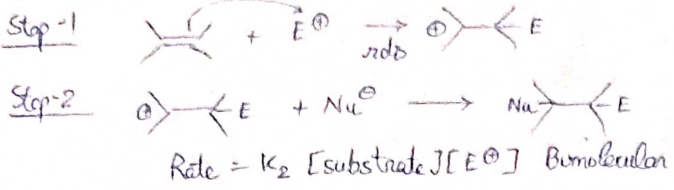 Step-1 + E⊕ rds ⊕ E
Step-2 ⊕ E + Nu⊖ → Nu E
Rate = K₂ [substrate][E⊕] Bimolecular